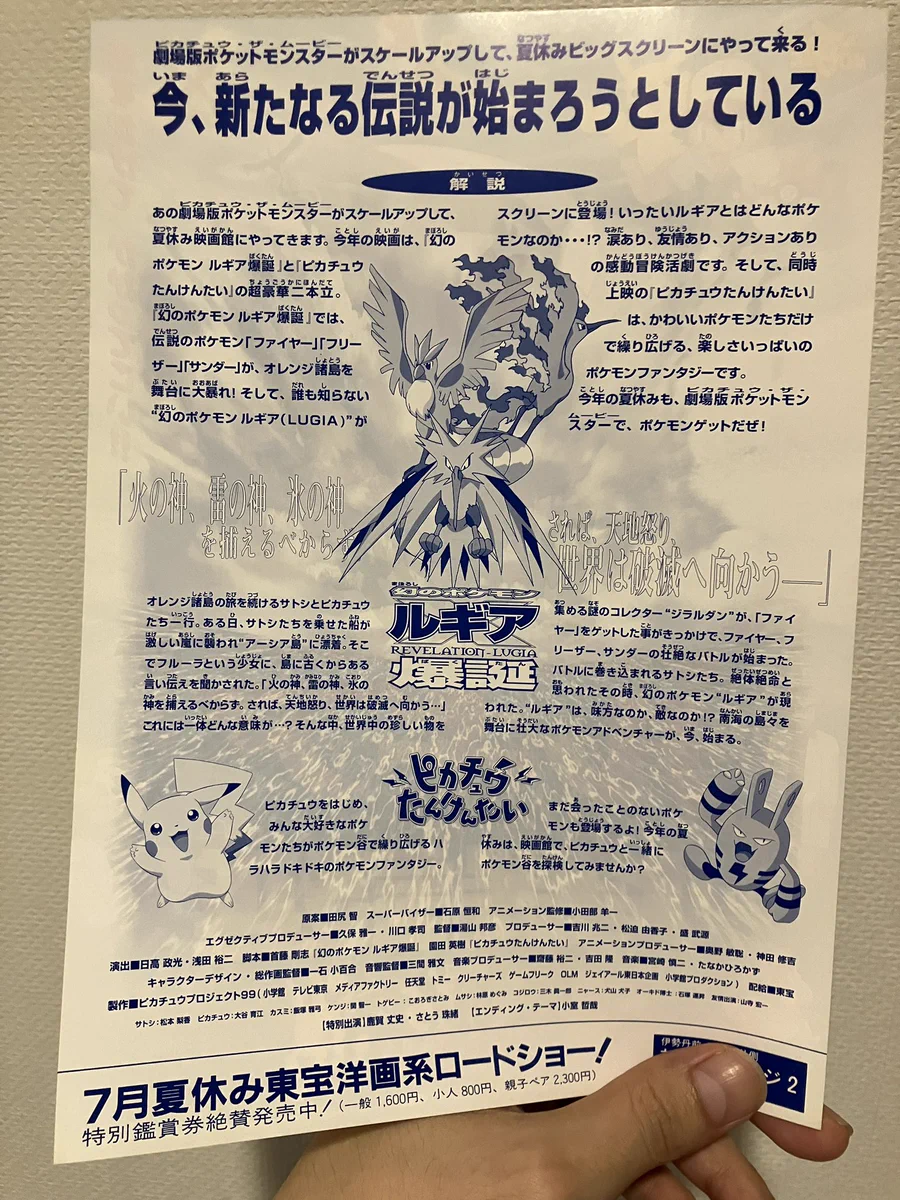 劇場版ポケットモンスターがスケールアップして、夏休みビッグスクリーンにやって来る！
今、新たなる伝説が始まろうとしている
解説
あの劇場版ポケットモンスターがスケールアップして、
夏休み映画館にやってきます。今年の映画は、『幻の
ポケモン ルギア爆誕』と『ピカチュウ
たんけんたい』の超豪華二本立。
『幻のポケモン ルギア爆誕』では、
伝説のポケモン「ファイヤー」「フリー
ザー」「サンダー」が、オレンジ諸島を
舞台に大暴れ！そして、誰も知らない
“幻のポケモン ルギア(LUGIA)”が
スクリーンに登場！いったいルギアとはどんなポケ
モンなのか・・・!? 涙あり、友情あり、アクションあり
の感動冒険活劇です。そして、同時
上映の『ピカチュウたんけんたい』
は、かわいいポケモンたちだけ
で繰り広げる、楽しさいっぱいの
ポケモンファンタジーです。
今年の夏休みも、劇場版ポケットモン
スターで、ポケモンゲットだぜ！
「火の神、雷の神、氷の神
を捕えるべからず
されば、天地怒り、
世界は破滅へ向かう——」
幻のポケモン
ルギア
REVELATION-LUGIA
爆誕
オレンジ諸島の旅を続けるサトシとピカチュウ
たち一行。ある日、サトシたちを乗せた船が
激しい嵐に襲われ“アーシア島”に漂着。そこ
でフルーラという少女に、島に古くからある
言い伝えを聞かされた。「火の神、雷の神、氷の
神を捕えるべからず。されば、天地怒り、世界は破滅へ向かう…」
これには一体どんな意味が…？そんな中、世界中の珍しい物を
集める謎のコレクター“ジラルダン”が、「ファイ
ヤー」をゲットした事がきっかけで、ファイヤー、フ
リーザー、サンダーの壮絶なバトルが始まった。
バトルに巻き込まれるサトシたち。絶体絶命と
思われたその時、幻のポケモン“ルギア”が現
われた。“ルギア”は、味方なのか、敵なのか!? 南海の島々を
舞台に壮大なポケモンアドベンチャーが、今、始まる。
ピカチュウ
たんけんたい
ピカチュウをはじめ、
みんな大好きなポケ
モンたちがポケモン谷で繰り広げるハ
ラハラドキドキのポケモンファンタジー。
まだ会ったことのないポケ
モンも登場するよ！今年の夏
休みは、映画館で、ピカチュウと一緒に
ポケモン谷を探検してみませんか？
原案■田尻 智　スーパーバイザー■石原 恒和　アニメーション監修■小田部 羊一
エグゼクティブプロデューサー■久保 雅一・川口 孝司　監督■湯山 邦彦　プロデューサー■吉川 兆二・松迫 由香子・盛 武源
演出■日高 政光・浅田 裕二　脚本■首藤 剛志『幻のポケモン ルギア爆誕』　園田 英樹『ピカチュウたんけんたい』　アニメーションプロデューサー■奥野 敏聡・神田 修吉
キャラクターデザイン・総作画監督■一石 小百合　音響監督■三間 雅文　音楽プロデューサー■斎藤 裕二・吉田 隆　音楽■宮崎 慎二・たなかひろかず
製作■ピカチュウプロジェクト99（小学館　テレビ東京　メディアファクトリー　任天堂　トミー　クリーチャーズ　ゲームフリーク　OLM　ジェイアール東日本企画　小学館プロダクション）　配給■東宝
サトシ：松本 梨香　ピカチュウ：大谷 育江　カスミ：飯塚 雅弓　ケンジ：関 智一　トゲピー：こおろぎさとみ　ムサシ：林原 めぐみ　コジロウ：三木 眞一郎　ニャース：犬山 犬子　オーキド博士：石塚 運昇　友情出演：山寺 宏一
【特別出演】鹿賀 丈史・さとう 珠緒　【エンディング・テーマ】小室 哲哉
7月夏休み東宝洋画系ロードショー！
特別鑑賞券絶賛発売中！（一般 1,600円、小人 800円、親子ペア 2,300円）
伊勢丹前
ジ 2